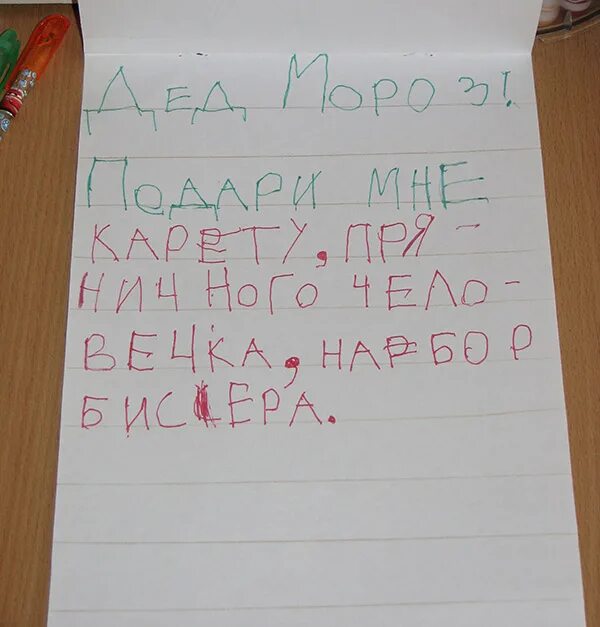 Дед Мороз!
Подари мне
карету, пря-
ничного чело-
вечка, набор
бисера.